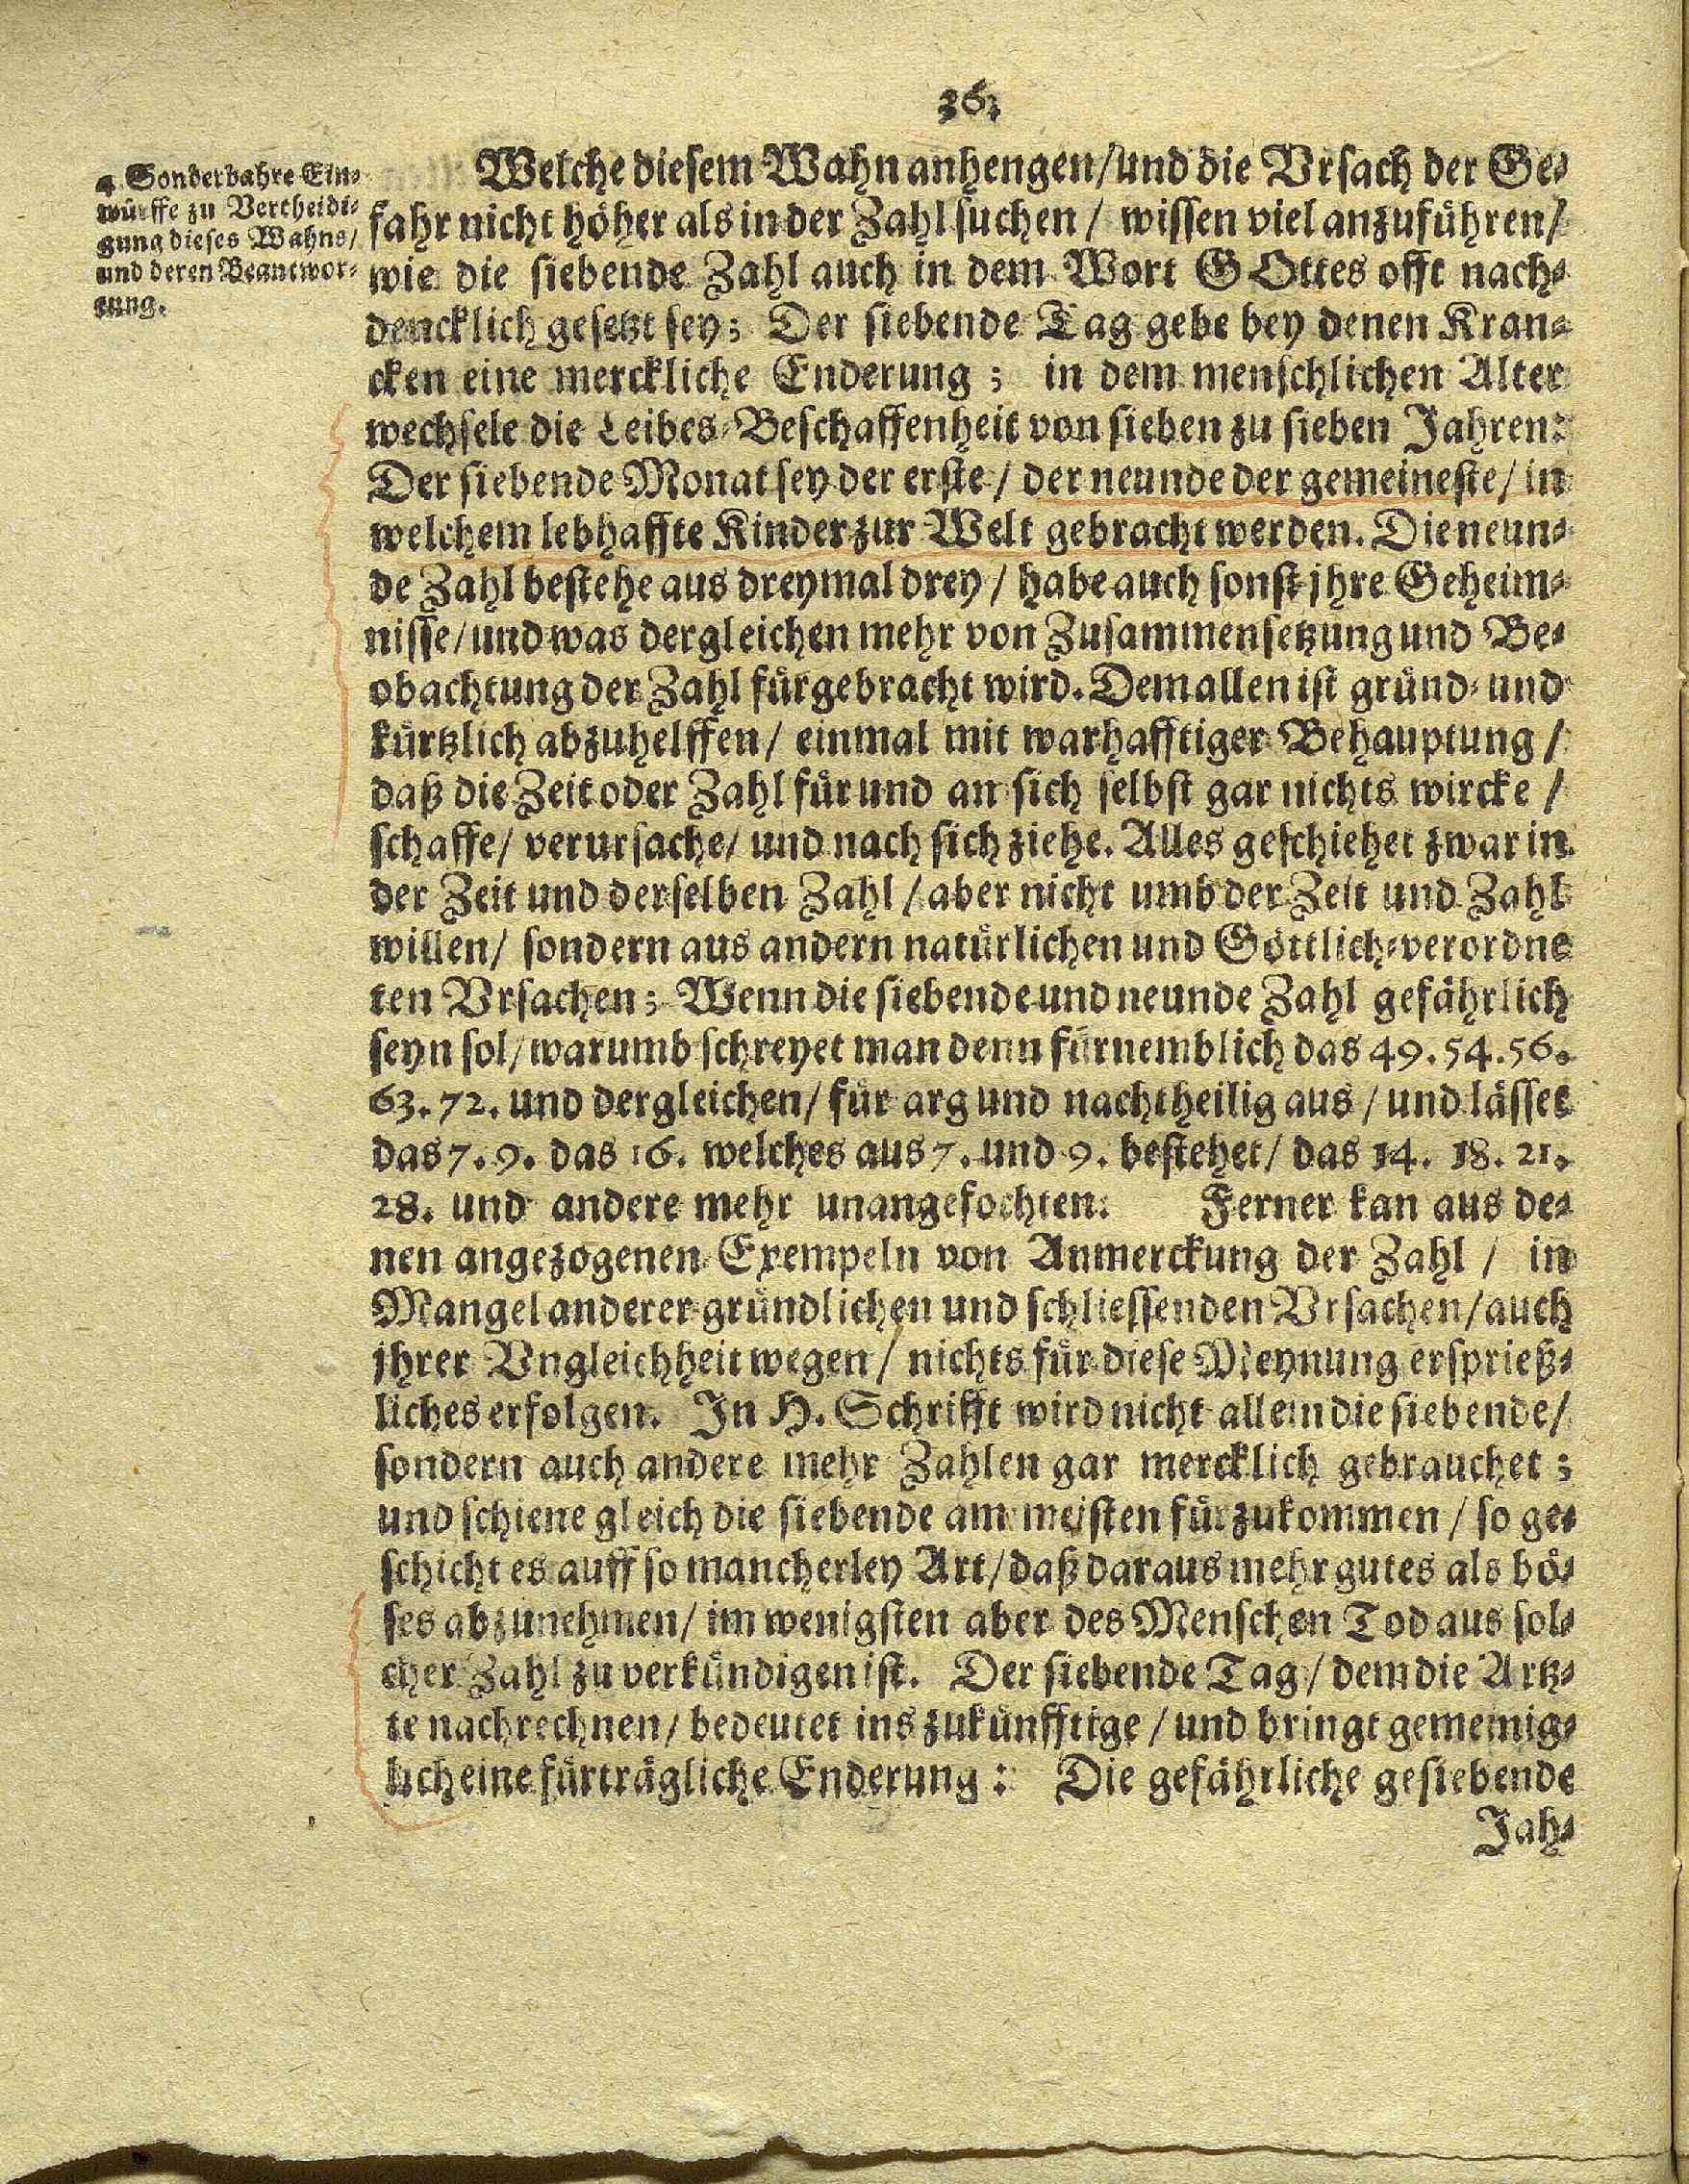 36.
4 Sonderbahre Ein-
würffe zu Vertheidi-
gung dieses Wahns/
und deren Beantwor-
tung.
Welche diesem Wahn anhengen/und die Vrsach der Ge-
fahr nicht höher als in der Zahl suchen / wissen viel anzuführen/
wie die siebende Zahl auch in dem Wort GOttes offt nach-
dencklich gesetzt sey; Der siebende Tag gebe bey denen Kran-
cken eine merckliche Enderung ; in dem menschlichen Alter
wechsele die Leibes-Beschaffenheit von sieben zu sieben Jahren:
Der siebende Monat sey der erste / der neunde der gemeineste / in
welchem lebhaffte Kinder zur Welt gebracht werden. Die neun-
de Zahl bestehe aus dreymal drey / habe auch sonst jhre Geheim-
nisse/und was dergleichen mehr von Zusammensetzung und Be-
obachtung der Zahl fürgebracht wird. Dem allen ist gründ- und
kürtzlich abzuhelffen/ einmal mit warhafftiger Behauptung /
daß die Zeit oder Zahl für und an sich selbst gar nichts wircke /
schaffe/ verursache/ und nach sich ziehe. Alles geschiehet zwar in
der Zeit und derselben Zahl / aber nicht umb der Zeit und Zahl
willen/ sondern aus andern natürlichen und Göttlich-verordne
ten Vrsachen; Wenn die siebende und neunde Zahl gefährlich
seyn sol/warumb schreyet man denn fürnemblich das 49. 54. 56.
63. 72. und dergleichen/ für arg und nachtheilig aus / und lässet
das 7. 9. das 16. welches aus 7. und 9. bestehet/ das 14. 18. 21.
28. und andere mehr unangefochten: Ferner kan aus de-
nen angezogenen Exempeln von Anmerckung der Zahl / in
Mangel anderer gründlichen und schliessenden Vrsachen/auch
jhrer Vngleichheit wegen / nichts für diese Meynung ersprieß-
liches erfolgen. In H. Schrifft wird nicht allein die siebende/
sondern auch andere mehr Zahlen gar mercklich gebrauchet ;
und schiene gleich die siebende am meisten fürzukommen / so ge-
schicht es auff so mancherley Art/daß daraus mehr gutes als bö-
ses abzunehmen/ im wenigsten aber des Menschen Tod aus sol-
cher Zahl zu verkündigen ist. Der siebende Tag / dem die Artz-
te nachrechnen/ bedeutet ins zukünfftige / und bringt gemeinig-
lich eine fürträgliche Enderung : Die gefährliche gesiebende
Jah-